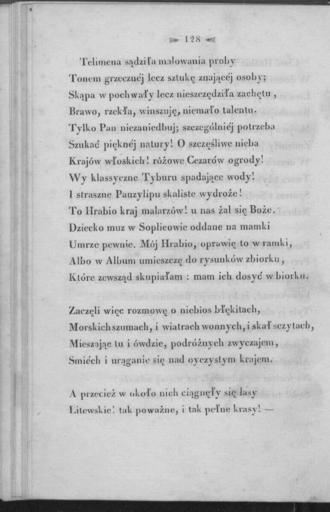 128
Telimena sądziła malowania proby
Tonem grzecznéj lecz sztukę znającéj osoby;
Skąpa w pochwały lecz nieszczędziła zachętu,
Brawo, rzekła, winszuję, niemało talentu.
Tylko Pan niezaniedbuj; szczególniéj potrzeba
Szukać pięknéj natury! O szczęśliwe nieba
Krajów włoskich! różowe Cezarów ogrody!
Wy klassyczne Tyburu spadające wody!
I straszne Pauzylipu skaliste wydroże!
To Hrabio kraj malarzów! u nas żal się Boże.
Dziecko muz w Soplicowie oddane na mamki
Umrze pewnie. Mój Hrabio, oprawię to w ramki,
Albo w Album umieszczę do rysunków zbiorku,
Które zewsząd skupiałam: mam ich dosyć w biorku.
Zaczęli więc rozmowę o niebios błękitach,
Morskich szumach, i wiatrach wonnych, i skał szczytach,
Mieszając tu i ówdzie, podróżnych zwyczajem,
Smiéch i urąganie się nad oyczystym krajem.
A przecież w około nich ciągnęły się lasy
Litewskie! tak poważne, i tak pełne krasy! —